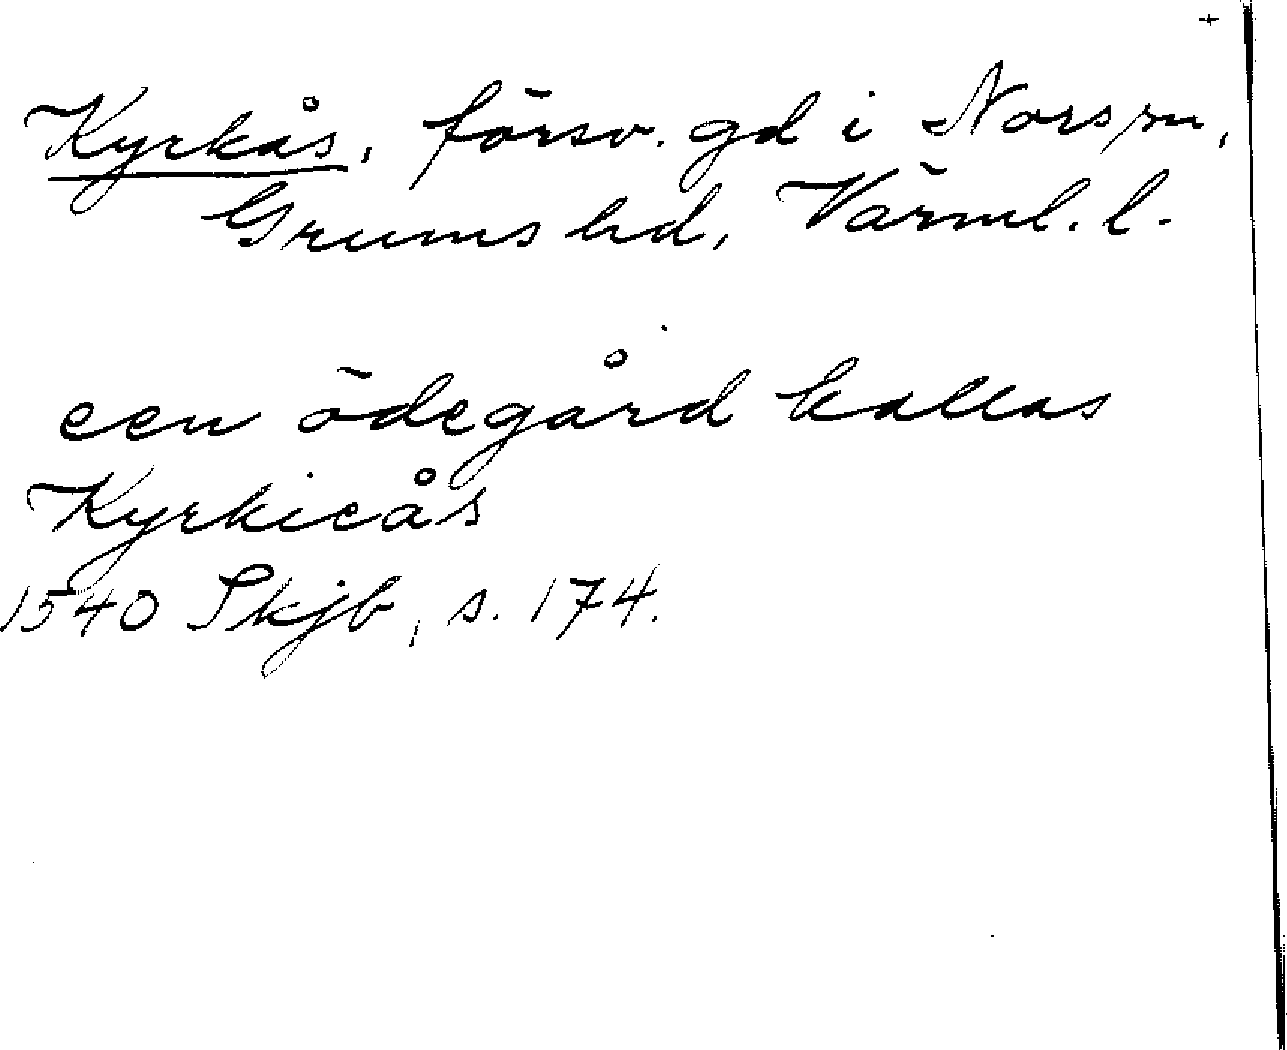 +
Kyrkås, försv. gd i Nors sn,
Grums hd, Värml. l.
een ödegård kallas
Kyrkieås
1540 Skjb, s. 174.